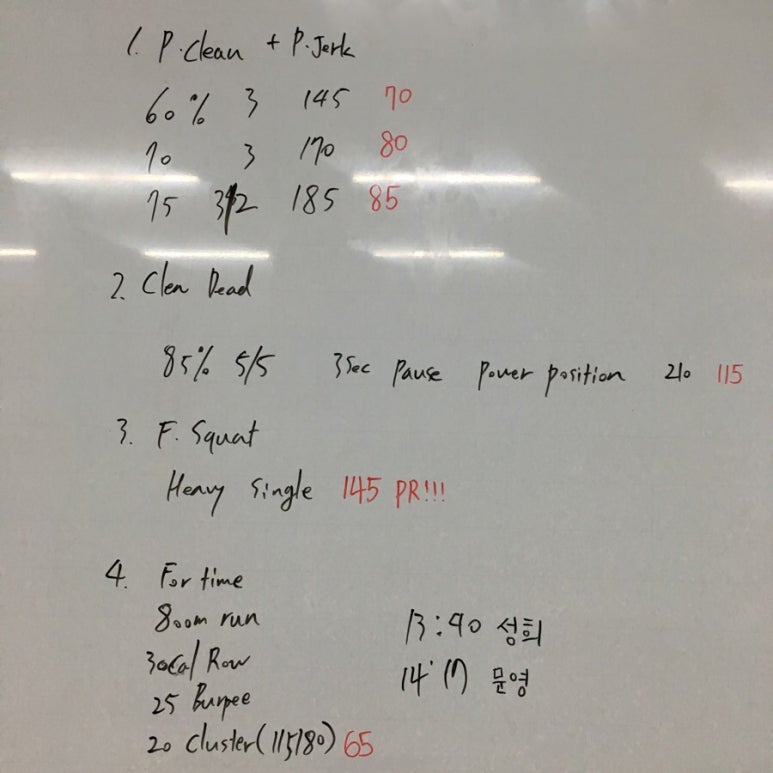 1. P.Clean + P.Jerk
60% 3 145 70
70 3 170 80
75 3/2 185 85
2. Clen Dead
85% 5/5 3sec pause power position 210 115
3. F. Squat
Heavy single 145 PR!!!
4. For time
800m run
30cal Row
25 Burpee
20 cluster(115/80) 65
13:40 성희
14:17 문영